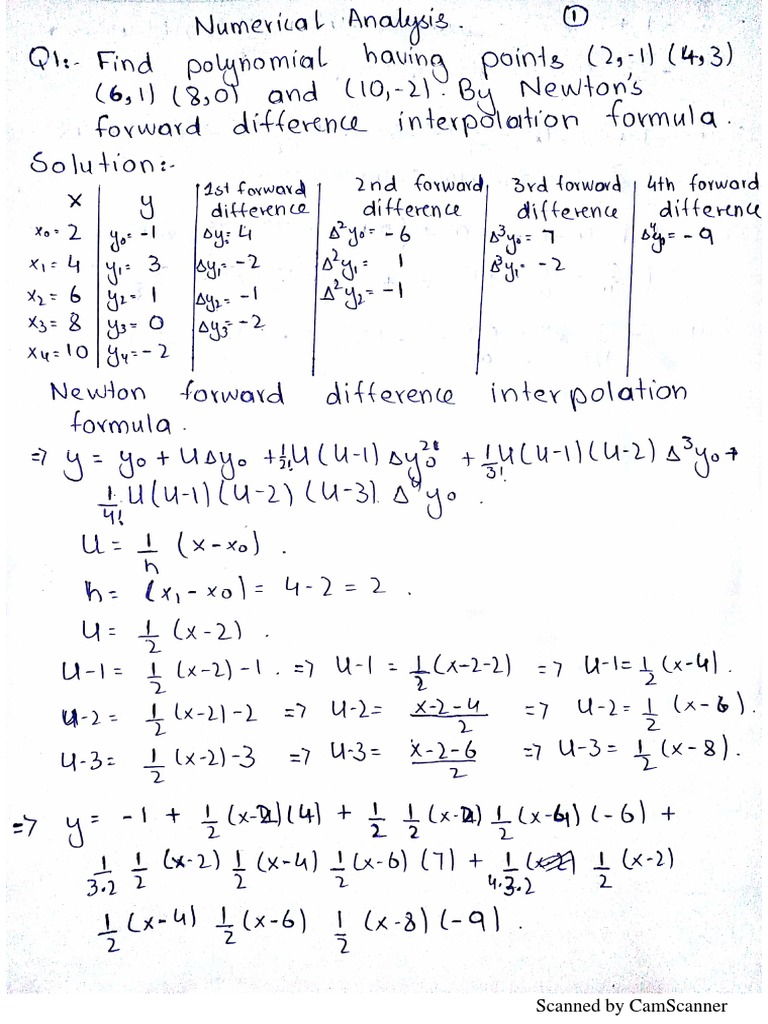 Numerical Analysis. ①
Q1:- Find polynomial having points (2,-1) (4,3)
(6,1) (8,0) and (10,-2). By Newton's
forward difference interpolation formula.
Solution:-
x | y | 1st forward difference | 2nd forward difference | 3rd forward difference | 4th forward difference
x₀ = 2 | y₀ = -1 | Δy₀ = 4 | Δ²y₀ = -6 | Δ³y₀ = 7 | Δ⁴y₀ = -9
x₁ = 4 | y₁ = 3 | Δy₁ = -2 | Δ²y₁ = 1 | Δ³y₁ = -2
x₂ = 6 | y₂ = 1 | Δy₂ = -1 | Δ²y₂ = -1
x₃ = 8 | y₃ = 0 | Δy₃ = -2
x₄ = 10 | y₄ = -2
Newton forward difference interpolation
formula.
⇒ y = y₀ + UΔy₀ + 1/2! U(U-1) Δy₀² + 1/3! U(U-1)(U-2) Δ³y₀ +
1/4! U(U-1)(U-2)(U-3) Δ⁴y₀ .
U = 1/h (x-x₀) .
h = (x₁-x₀) = 4-2 = 2 .
U = 1/2 (x-2) .
U-1 = 1/2 (x-2)-1 . ⇒ U-1 = 1/2 (x-2-2) ⇒ U-1 = 1/2 (x-4) .
U-2 = 1/2 (x-2)-2 ⇒ U-2 = x-2-4/2 ⇒ U-2 = 1/2 (x-6) .
U-3 = 1/2 (x-2)-3 ⇒ U-3 = x-2-6/2 ⇒ U-3 = 1/2 (x-8) .
⇒ y = -1 + 1/2 (x-2)(4) + 1/2 1/2 (x-2) 1/2 (x-4)(-6) +
1/3·2 1/2 (x-2) 1/2 (x-4) 1/2 (x-6) (7) + 1/4·3·2 1/2 (x-2)
1/2 (x-4) 1/2 (x-6) 1/2 (x-8)(-9) .
Scanned by CamScanner